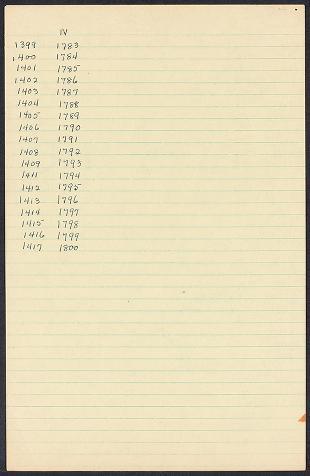 IV
1399 1783
1400 1784
1401 1785
1402 1786
1403 1787
1404 1788
1405 1789
1406 1790
1407 1791
1408 1792
1409 1793
1411 1794
1412 1795
1413 1796
1414 1797
1415 1798
1416 1799
1417 1800